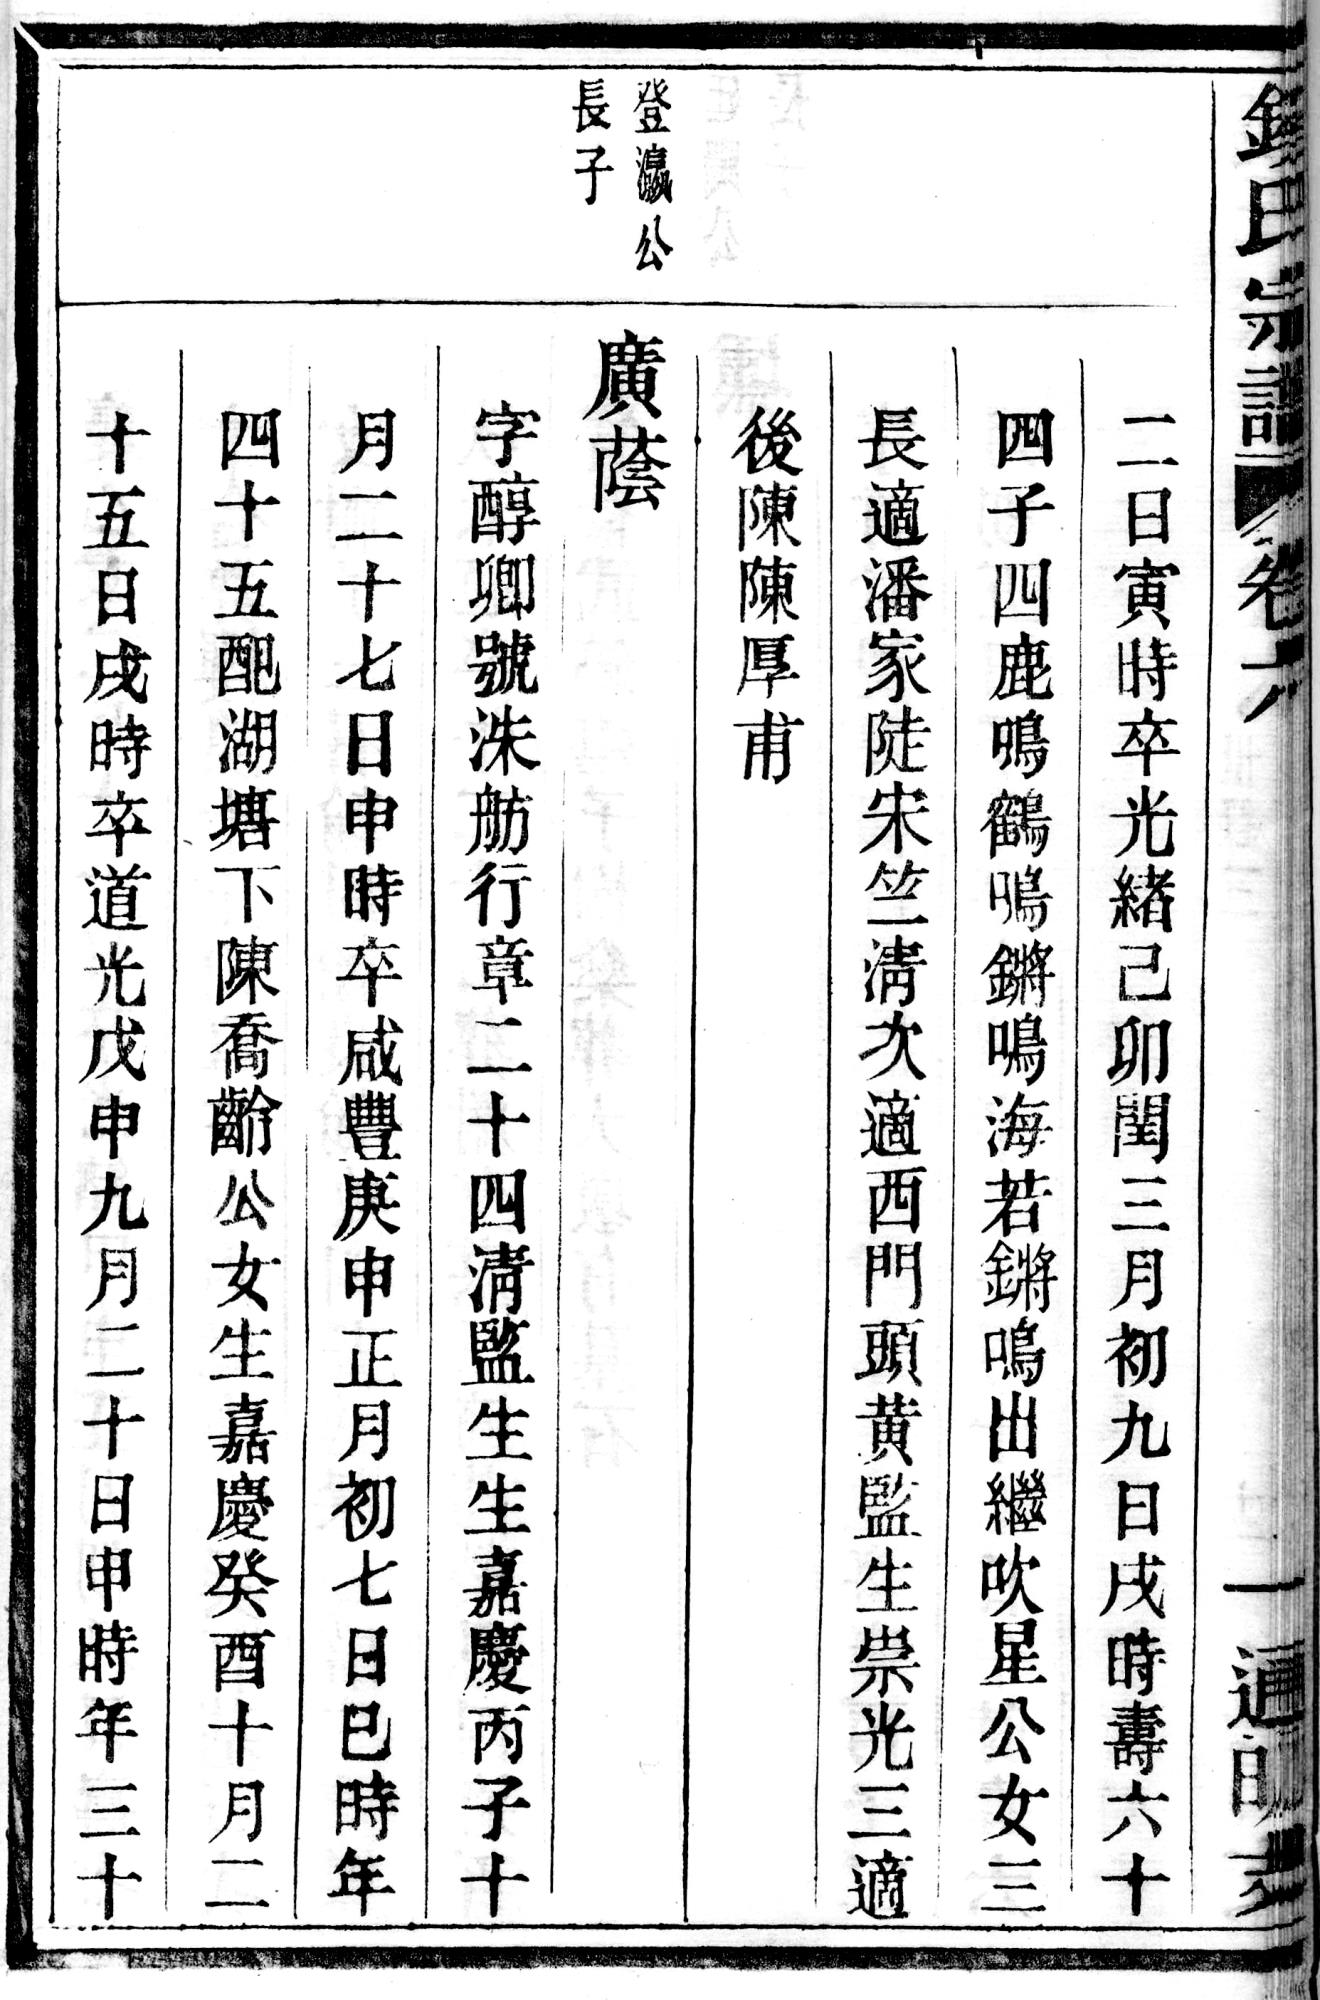 氏宗譜
卷六
二日寅時卒光緒己卯閏三月初九日戌時壽六十
四子四鹿鳴鶴鳴鏘鳴海若鏘鳴出繼吹星公女三
長適潘家陡宋竺淸次適西門頭黃監生崇光三適
後陳陳厚甫
登瀛公
長子
廣蔭
字醇卿號洙舫行章二十四淸監生生嘉慶丙子十
月二十七日申時卒咸豐庚申正月初七日巳時年
四十五配湖塘下陳喬齡公女生嘉慶癸酉十月二
十五日戌時卒道光戊申九月二十日申時年三十